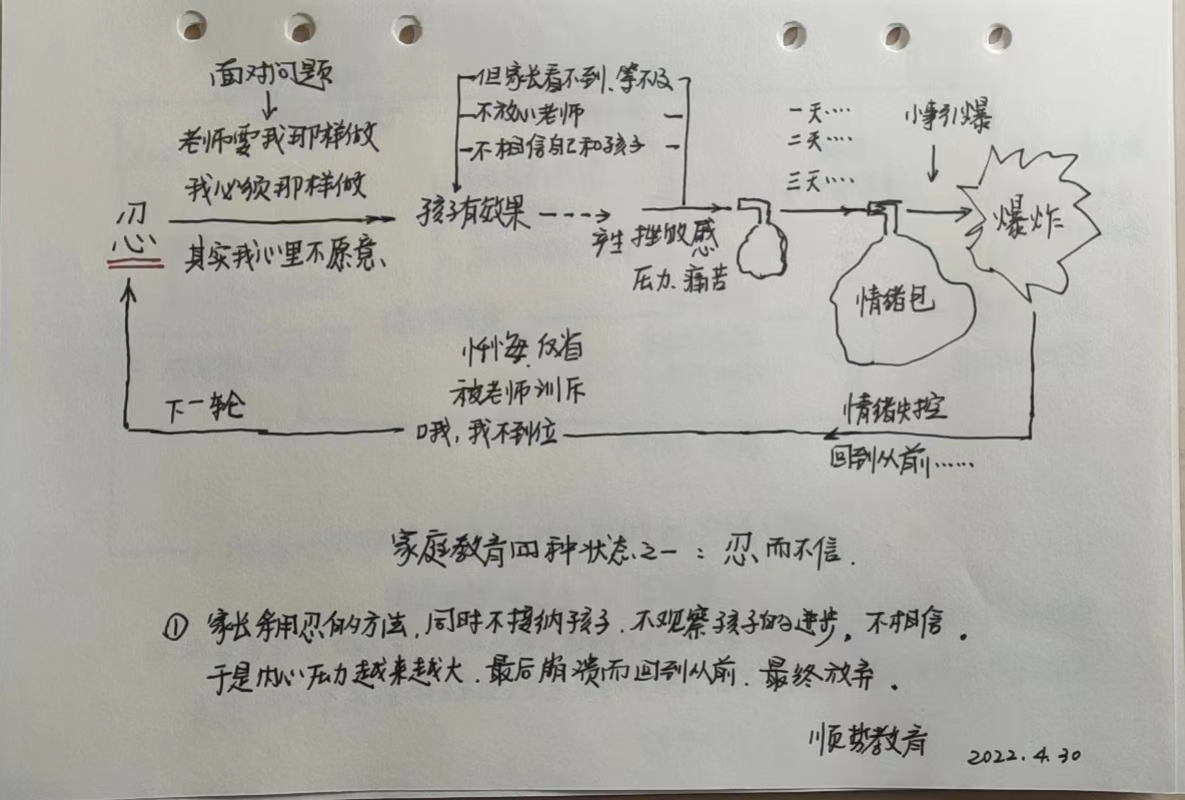 面对问题
老师要我那样做
我必须那样做
忍
其实我心里不愿意、
但家长看不到、等不及
不放心老师
不相信自己和孩子
孩子有效果
产生挫败感
压力、痛苦
一天····
二天····
三天····
小事引爆
情绪包
爆炸
情绪失控
回到从前······
忏悔、反省
被老师训斥
哦,我不到位
下一轮
家庭教育四种状态之一:忍而不信.
① 家长采用忍的方法,同时不接纳孩子.不观察孩子的进步,不相信.
于是内心压力越来越大.最后崩溃而回到从前.最终放弃.
顺势教育
2022.4.30